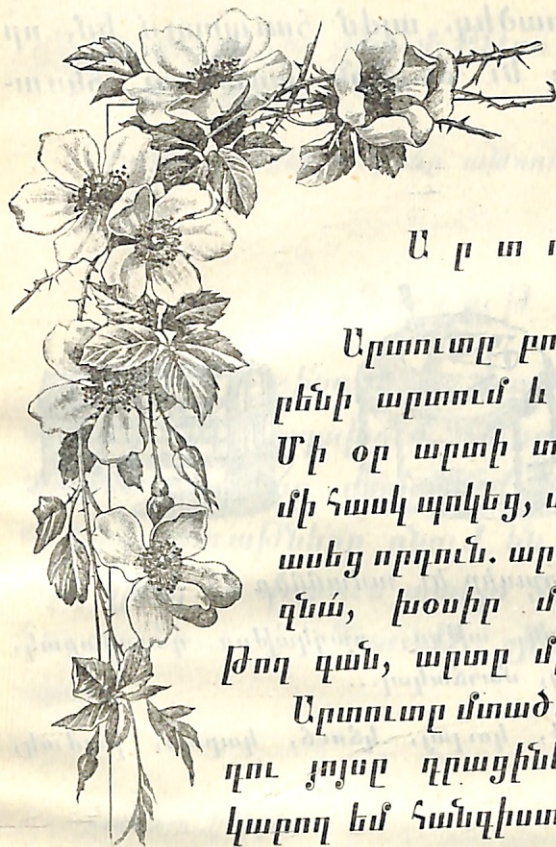 Ա ր տ
Արտուտը բո
րենի արտում և
Մի օր արտի տ
մի հասկ պոկեց,
ասեց որդուն. ար
գնա՛, խօսիր մ
Թող գան, արտը մ
Արտուտը մտած
դու յոյսը դրացինե
կարող եմ հանգիստ